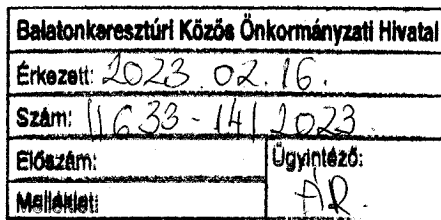 Balatonkeresztúri Közös Önkormányzati Hivatal
Érkezett: 2023.02.16.
Szám: 11633-14/2023.
Előszám: Ügyintéző:
Melléklet: ÁR.